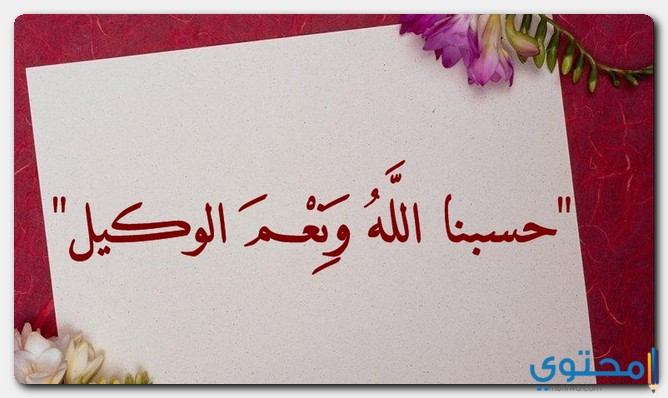 "حسبنا اللَّهُ وَنِعْمَ الوكيل"
محتوي